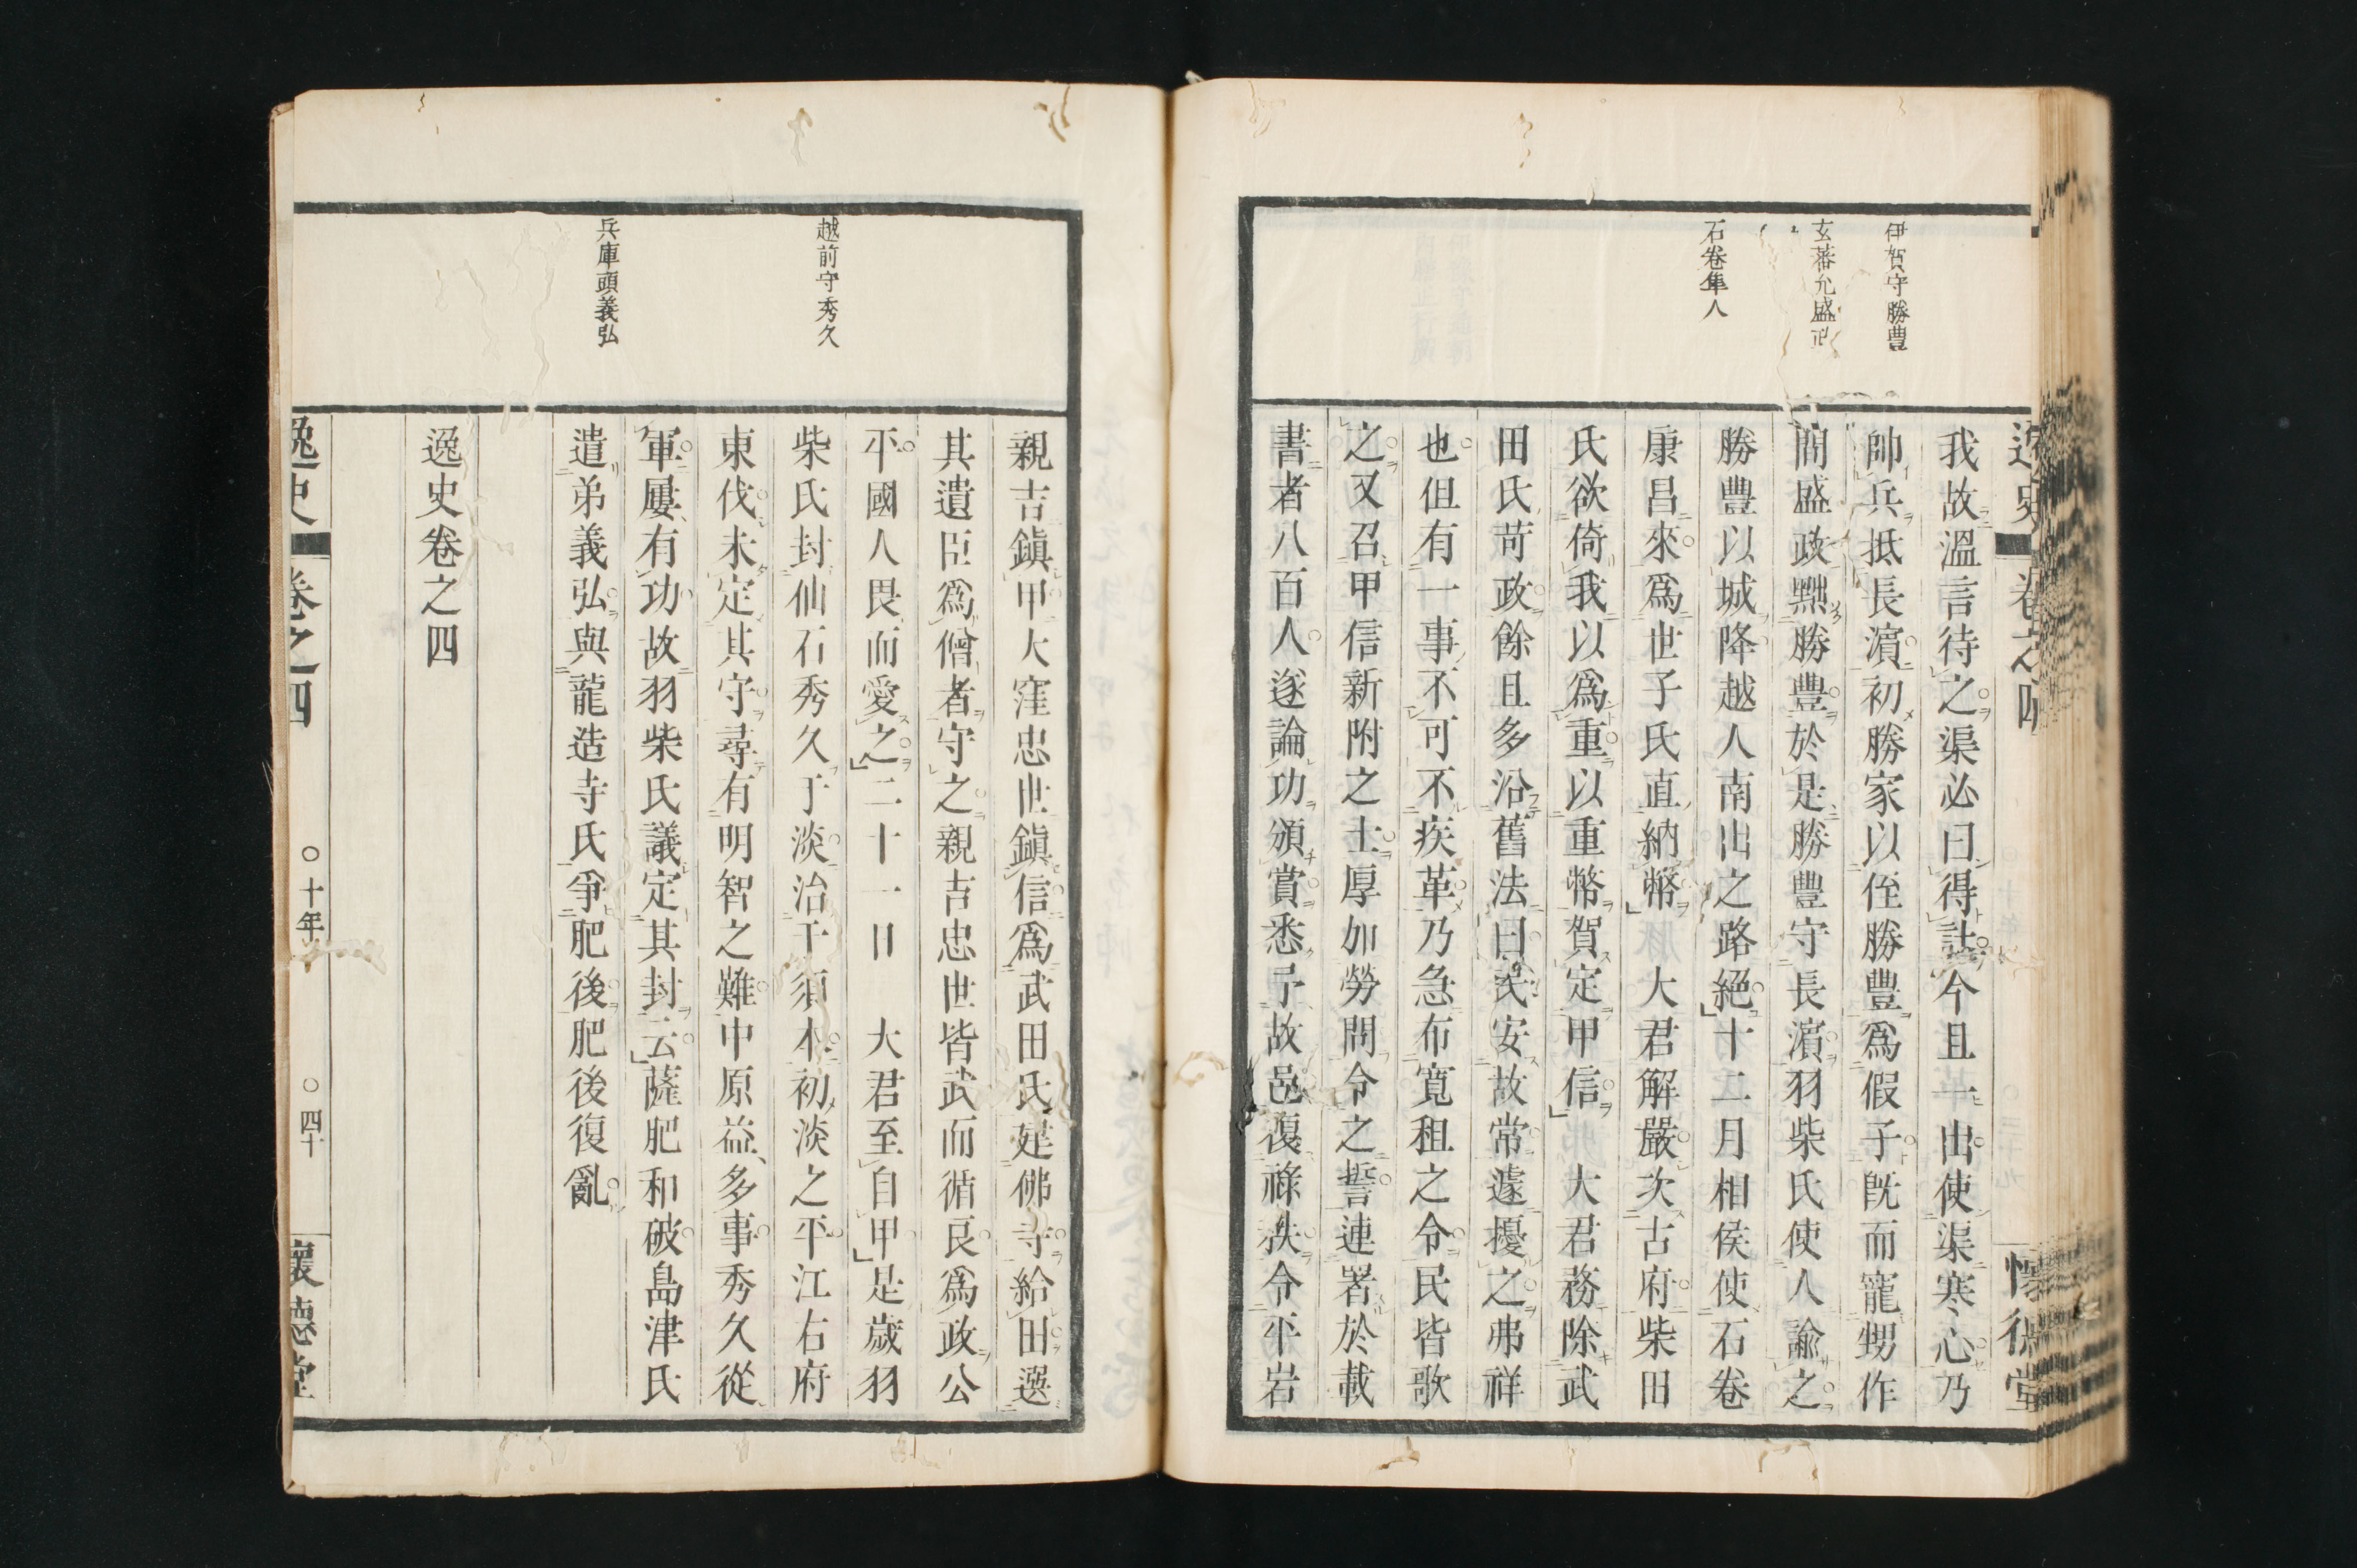 伊賀守勝豊
玄蕃允盛政
石卷隼人
我故溫言待之渠必曰得計今且一出使渠寒心乃
帥兵抵長濵初勝家以侄勝豊爲假子旣而寵甥作
間盛政黜勝豊於是勝豊守長濵羽柴氏使人諭之
勝豊以城降越人南出之路絕十二月相侯使石卷
康昌來爲世子氏直納幣 大君解嚴次古府柴田
氏欲倚我以爲重以重幣賀定甲信 大君務除武
田氏苛政餘且多沿舊法曰民安故常遽擾之弗祥
也但有一事不可不疾革乃急布寛租之令民皆歌
之又召甲信新附之士厚加勞問令之誓連署於載
書者八百人遂論功頒賞悉予故邑復祿秩令平岩
越前守秀久
兵庫頭義弘
親吉鎭甲大窪忠世鎭信爲武田氏建佛寺給田選
其遺臣爲僧者守之親吉忠世皆武而循良爲政公
平國人畏而愛之二十一日 大君至自甲是歲羽
柴氏封仙石秀久于淡治于須本初淡之平江右府
東伐未定其守尋有明智之難中原益多事秀久從
軍屢有功故羽柴氏議定其封云薩肥和破島津氏
遣弟義弘與龍造寺氏爭肥後肥後復亂
逸史卷之四
逸史 卷之四 ○十年 ○四十 懷德堂